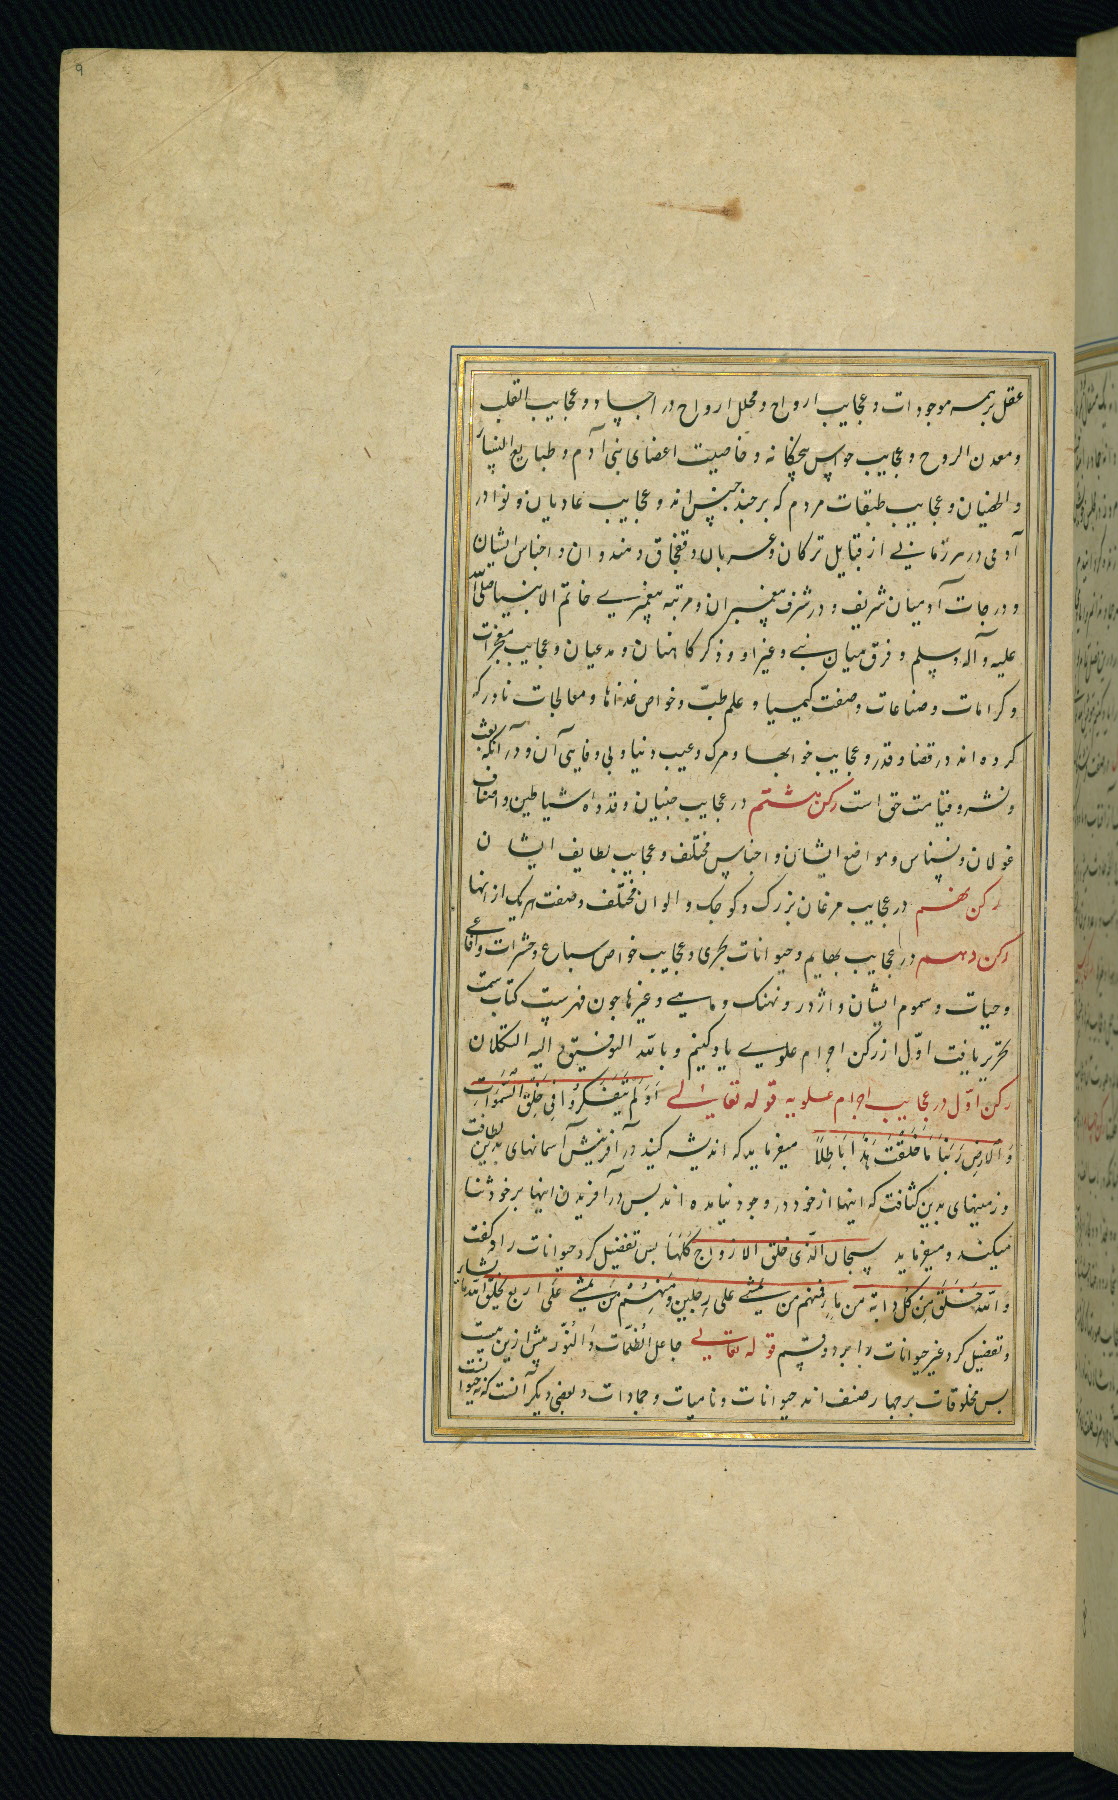 ۹
عقل بر همه موجودات و عجایب ارواح و محلل ارواح در اجساد و عجایب القلب
و معدن الروح و عجایب حواس پنجکانه و خاصیت اعضای بنی آدم و طبایع النساء
و عجایب طبقات مردم که بر چند جنس اند و عجایب عادیان و نوادر
آدمی در هر زمانی از قبایل ترکان و عربان و قفجاق و هندوان و اجناس ایشان
و درجات آدمیان شریف و در شرف پیغمبران و مرتبه پیغمبری خاتم الانبیا صلی الله
علیه و آله و سلم و فرق میان نبی و غیر او و ذکر کاهنان و مدعیان و عجایب معجزات
و کرامات و صناعات و صفت کیمیا و علم طب و خواص غذاها و معالجات نادر که
کرده اند در قضا و قدر و عجایب خوابها و مرک و عیب دنیا و بی وفایی آن و در آنکه بعث
و نشر و قیامت حق است رکن هشتم در عجایب جنیان و شیاطین و اصناف
غولان و نسناس و مواضع ایشان و اجناس مختلف و عجایب لطایف ایشان
رکن نهم در عجایب مرغان بزرک و کوجک و الوان مختلف و صفت هر یک از انها
رکن دهم در عجایب بهایم و حیوانات بحری و عجایب خواص سباع و حشرات و افاعی
و حیات و سموم ایشان و اژدر و نهنک و ماهی و غیرها جون فهرست کتاب سمت
تحریر یافت اول از رکن اجرام علوی یاد کنیم و بالله التوفیق و الیه التکلان
رکن اول در عجایب اجرام علویه قوله تعالی اَوَلَم یَتَفَکَّرُوا فِی خَلْقِ السَّمٰوَات
وَ الاَرضِ رَبَّنَا مَا خَلَقْتَ هَذَا بَاطِلاً میفرماید که اندیشه کنید در آفرینش آسمانهای بدین لطافت
و زمینهای بدین کثافت که اینها از خود در وجود نیامده اند بس در آفریدن اینها بر خود ثنا
میکند و میفرماید سبحان الّذی خلق الازواج کُلّهَا بس تفضیل کرد حیوانات را و کفت
و الله خَلَقَ کل دابّة من ماء فمنهم من یمشی علی رجلین و مِنهُم مَن یَمشی عَلَی اربع یخلق الله ما یشاء
و تفضیل کرد غیر حیوانات را بر دو قسم قوله تعالی جاعل الظلمات و النّور بیش ازین نیست
بس مخلوقات بر جهار صنف اند حیوانات و نامیات و جمادات و بعضی دیکر آنست که نه حیوانست